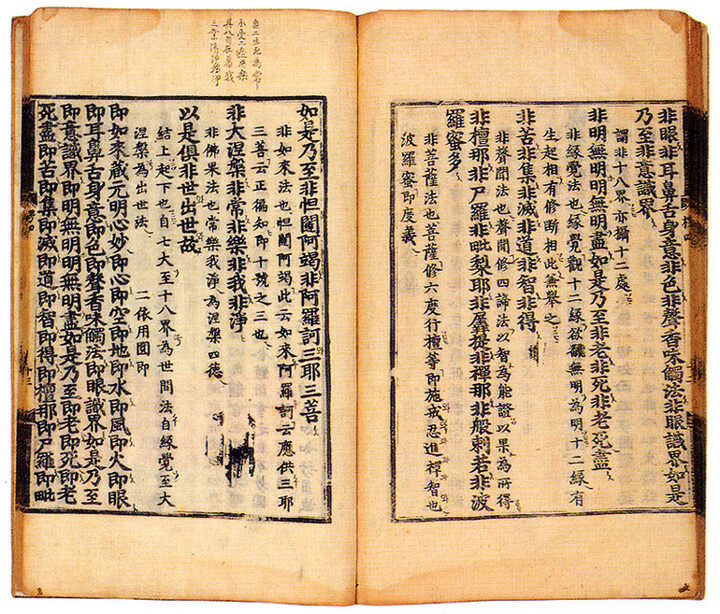 非眼非耳鼻舌身意非色非聲香味觸法非眼識界如是
乃至非意識界
謂非十八界亦攝十二處
非明無明明無明盡如是乃至非老非死非老死盡
非緣覺法也緣覺觀十二緣欲離無明為明十二緣有
生起相有修斷相此無舉之
非苦非集非滅非道非智非得
非聲聞法也聲聞修四諦法以智為能證以果為所得
非檀那非尸羅非毗梨耶非羼提非禪那非般剌若非波
羅蜜多
非菩薩法也菩薩修六度行檀等即施戒忍進禪智也
波羅蜜即度義
無二生死為常
不受二邊為樂
具八自在為我
三業清淨為淨
如是乃至非怛闥阿竭非阿羅訶三耶三菩
非如來法也怛闥阿竭此云如來阿羅訶云應供三耶
三菩云正徧知即十號之三也
非大涅槃非常非樂非我非淨
非佛果法也常樂我淨為涅槃四德
以是俱非世出世故
結上起下也自七大至十八界為世間法自緣覺至大
涅槃為出世法 二依用圓即
即如來藏元明心妙即心即空即地即水即風即火即眼
即耳鼻舌身意即色即聲香味觸法即眼識界如是乃至
即意識界即明無明明無明盡如是乃至即老即死即老
死盡即苦即集即滅即道即智即得即檀那即尸羅即毗